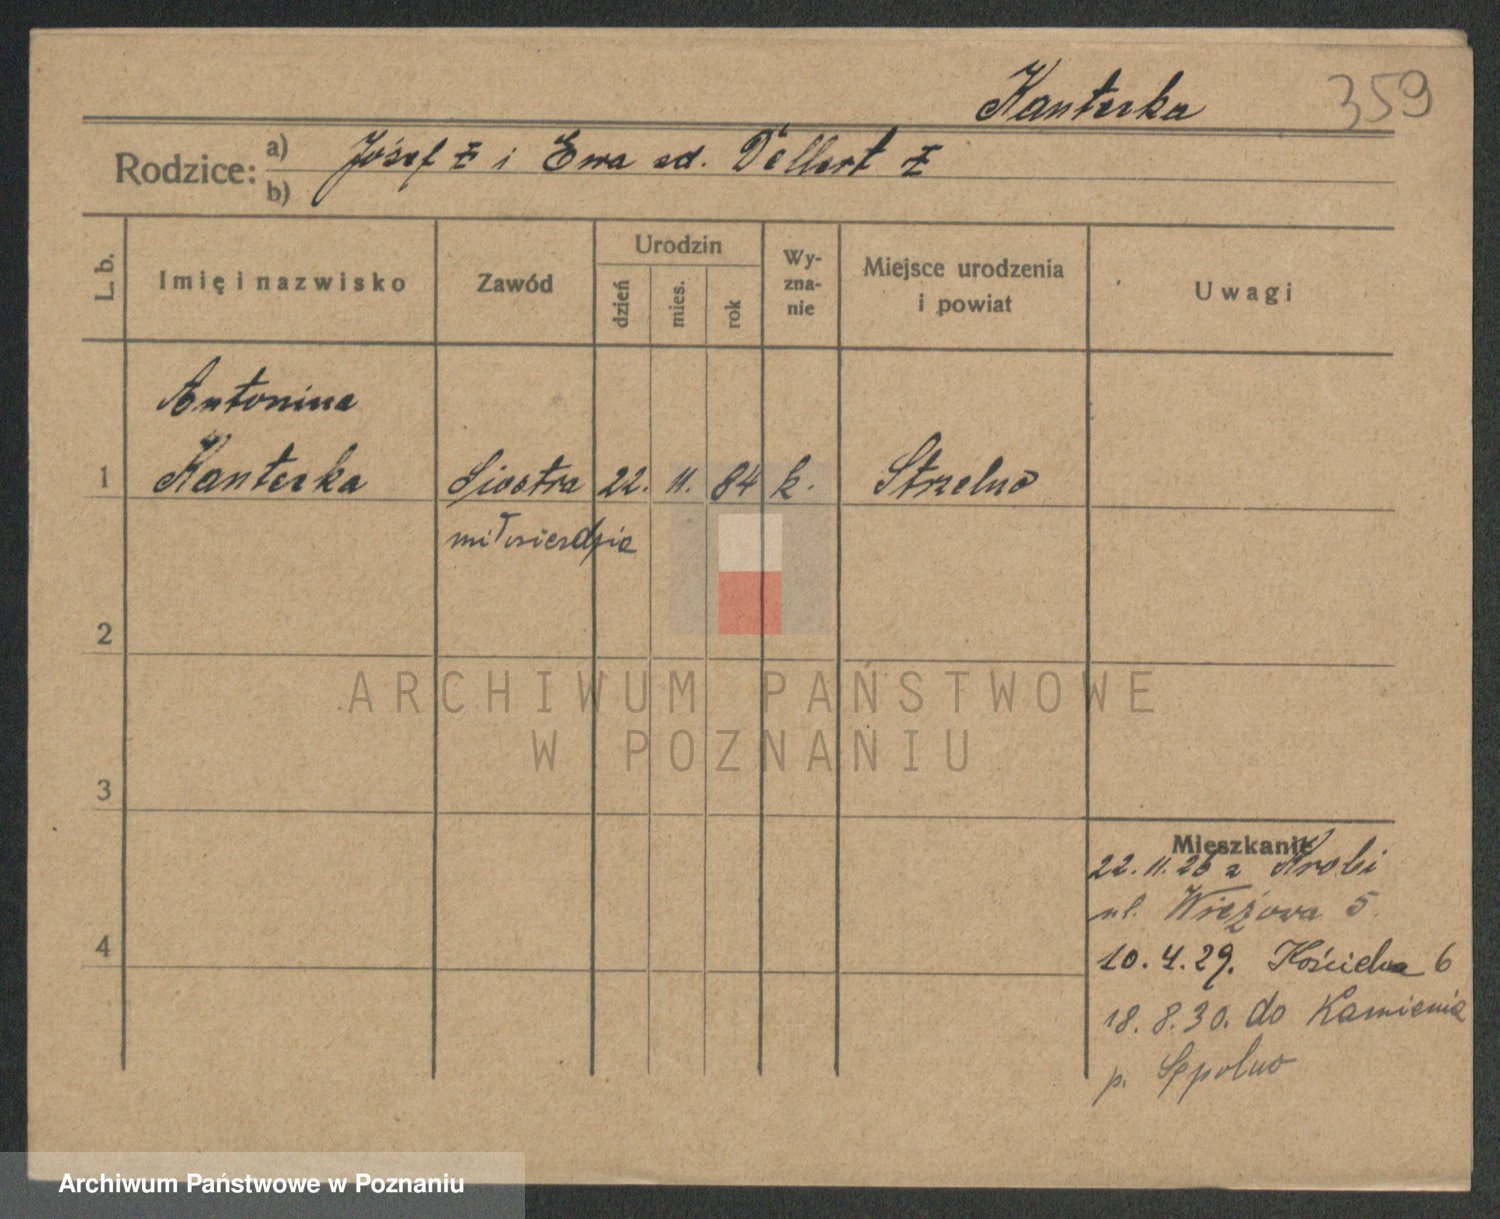 Kanterka 359
Rodzice: a) b) Józef Ż i Ewa zd. Dellert Ż
L. b. Imię i nazwisko Zawód Urodzin dzień mies. rok Wy-zna-nie Miejsce urodzenia i powiat Uwagi
Antonina
1 Kanterka Siostra 22. 11. 84 k. Strzelno
miłosierdzia
2
ARCHIWUM PAŃSTWOWE
W POZNANIU
3
Mieszkanie
22. 11. 26 z Krobi
ul. Wieżowa 5.
4 10. 4. 29. Kościelna 6
18. 8. 30. do Kamienia
p. Sępolno
Archiwum Państwowe w Poznaniu